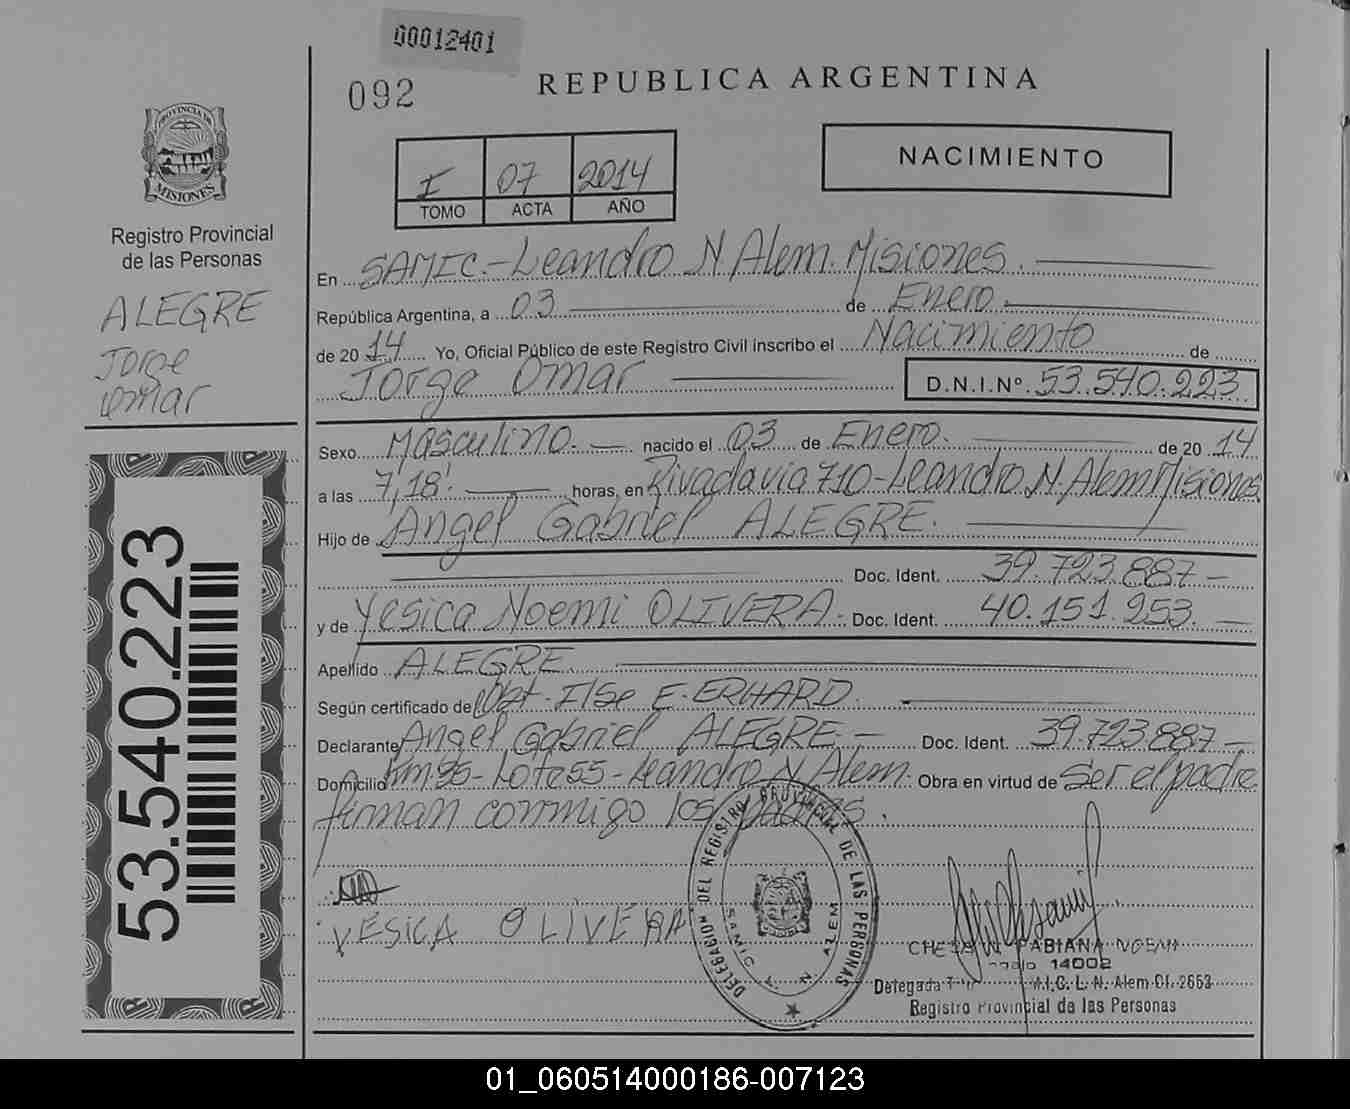 00012401
092
REPUBLICA ARGENTINA
PROVINCIA DE
MISIONES
Registro Provincial
de las Personas
ALEGRE
Jorge
Omar
I 07 2014
TOMO ACTA AÑO
NACIMIENTO
En SAMIC.-Leandro N Alem. Misiones.
República Argentina, a 03 de Enero.
de 20 14 Yo, Oficial Público de este Registro Civil inscribo el Nacimiento de
Jorge Omar D.N.I.Nº. 53.540.223
Sexo Masculino. nacido el 03 de Enero. de 20 14
a las 7,18' horas, en Rivadavia 710-Leandro N. Alem Misiones
Hijo de Angel Gabriel ALEGRE.
Doc. Ident. 39.723.887-
y de Yesica Noemi OLIVERA.- Doc. Ident. 40.151.253.
Apellido ALEGRE
Según certificado de Obst. Ilse E. ERHARD.
Declarante Angel Gabriel ALEGRE.- Doc. Ident. 39.723.887-
Domicilio Km 95-Lote 55-Leandro N Alem. Obra en virtud de Ser el padre
firman conmigo los padres.
YESICA OLIVERA
53.540.223
DELEGACION DEL REGISTRO PROVINCIAL DE LAS PERSONAS
SAMIC L. N. ALEM
FABIANA NOEMI
14002
Delegada M.I.C. L. N. Alem Of. 2653
Registro Provincial de las Personas
01_060514000186-007123